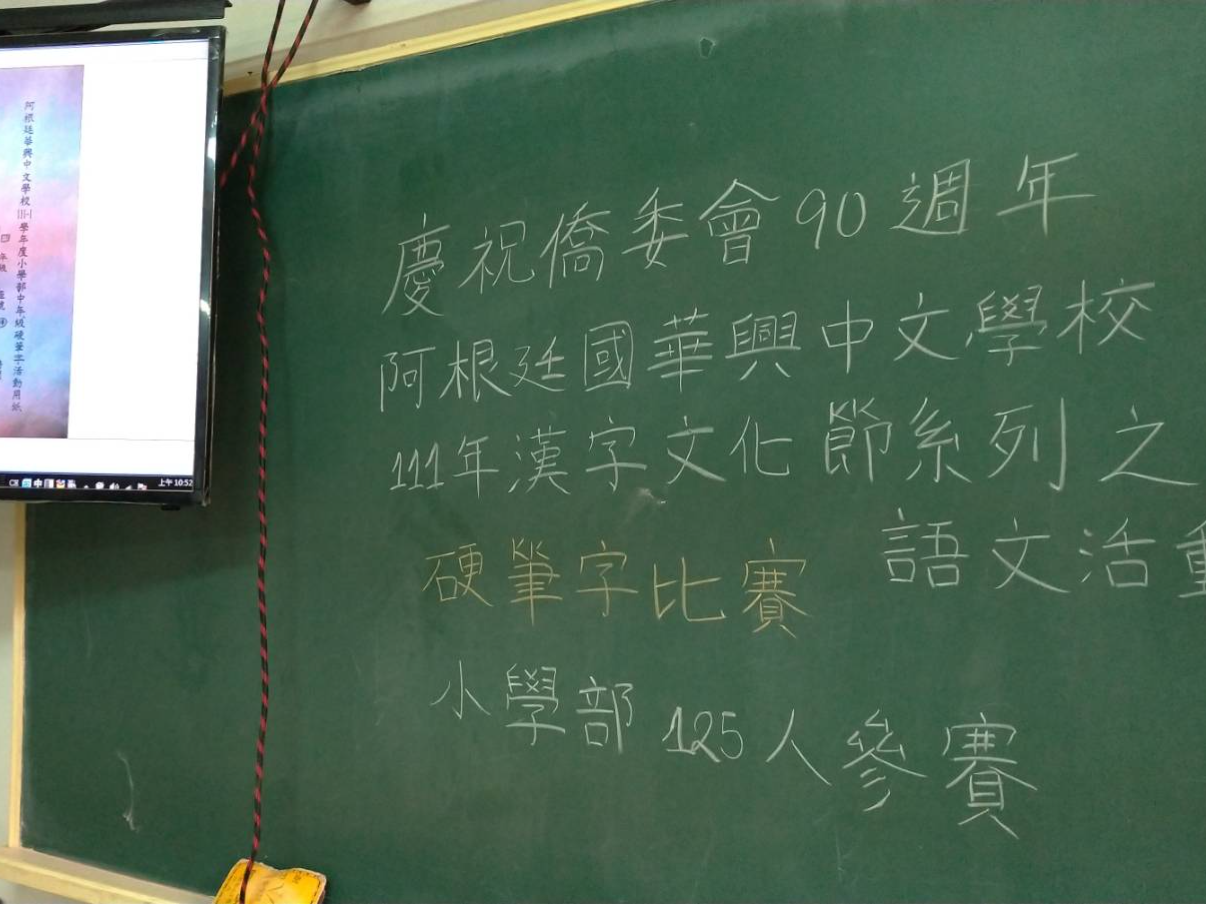 慶祝僑委會90週年
阿根廷國華興中文學校
111年漢字文化節系列之
語文活動
硬筆字比賽
小學部125人參賽
阿根廷華興中文學校111-1學年度小學部中年級硬筆字活動用紙
四年級
上午 10:52